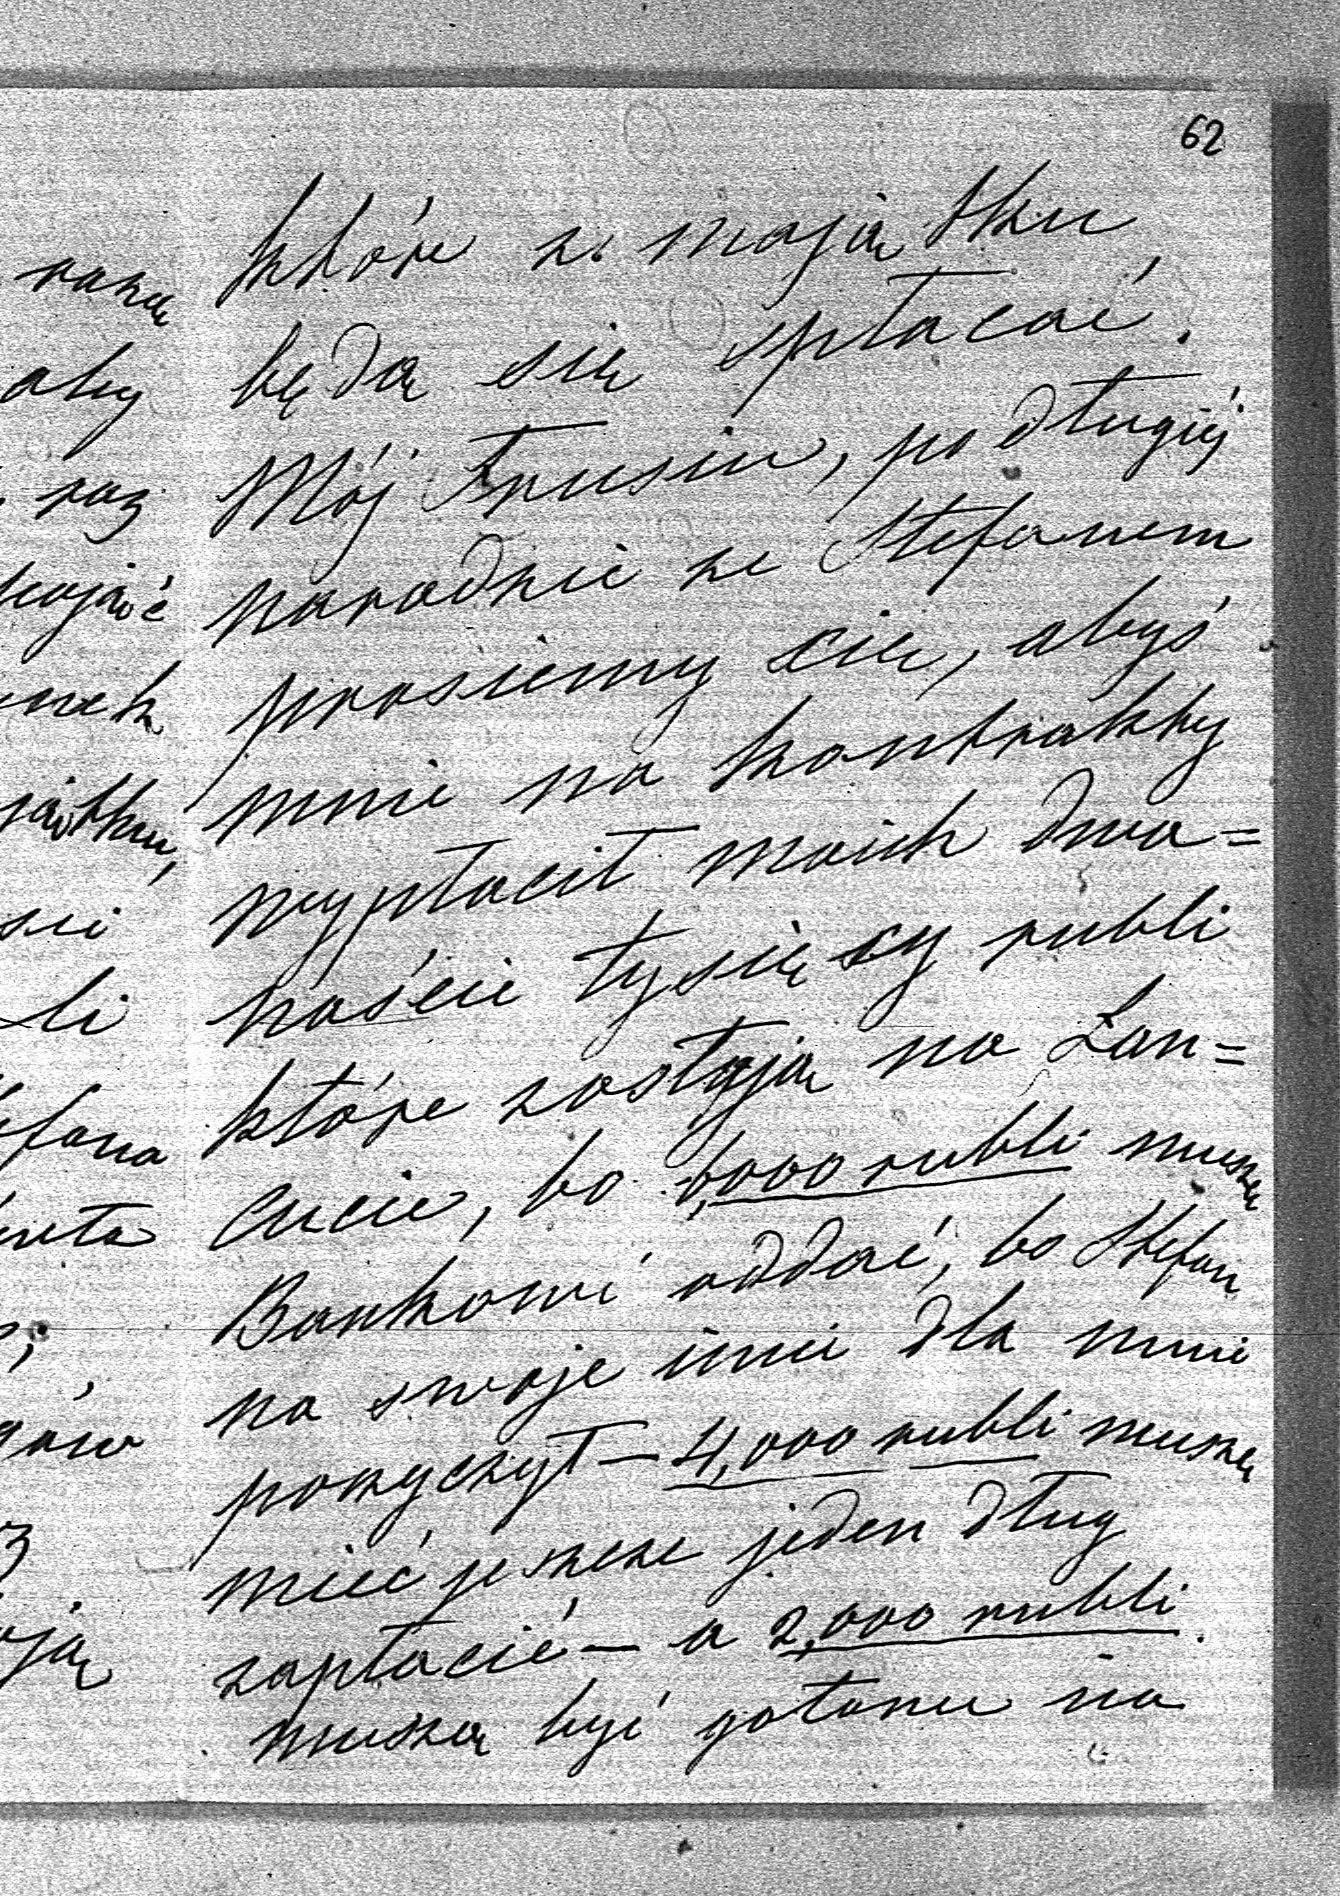 62
które z majątku
będą się spłacać.
Mój Trusiu, po długiéj
naradzie ze Stefanem
prosiemy cię, abyś
mnie na kontrakty
wypłacił moich dwa=
naście tysięcy rubli
które zostają na Łan=
cucie, bo 6,000 rubli muszę
Bankowi oddać, bo Stefan
na swoje imie dla mnie
pożyczył – 4,000 rubli muszę
mieć jeszcze jeden dług
zapłacić – a 2,000 rubli
muszą być gotowe na
aby
raz
majątku,
Stefana